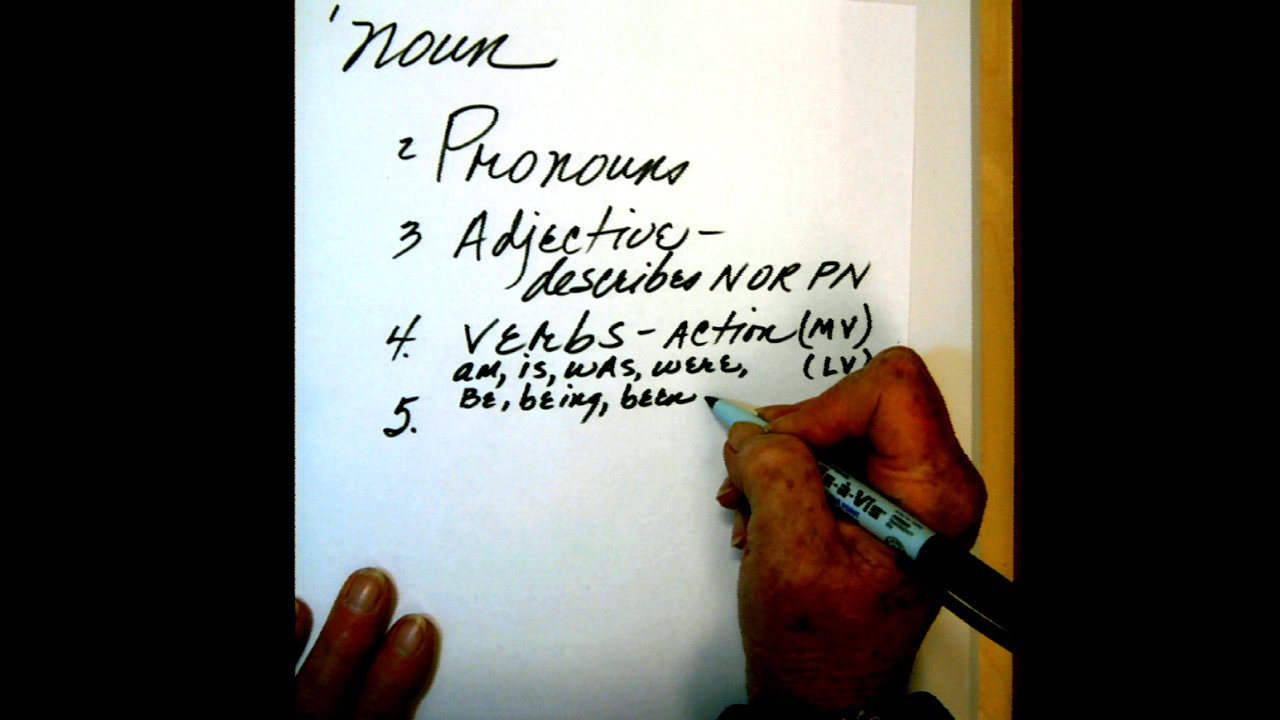 1 noun
2 Pronouns
3 Adjective -
describes N OR PN
4. VERbS - ACtion (MV)
am, is, WAS, WERE, (LV)
BE, bEing, been
5.
is-à-Vis